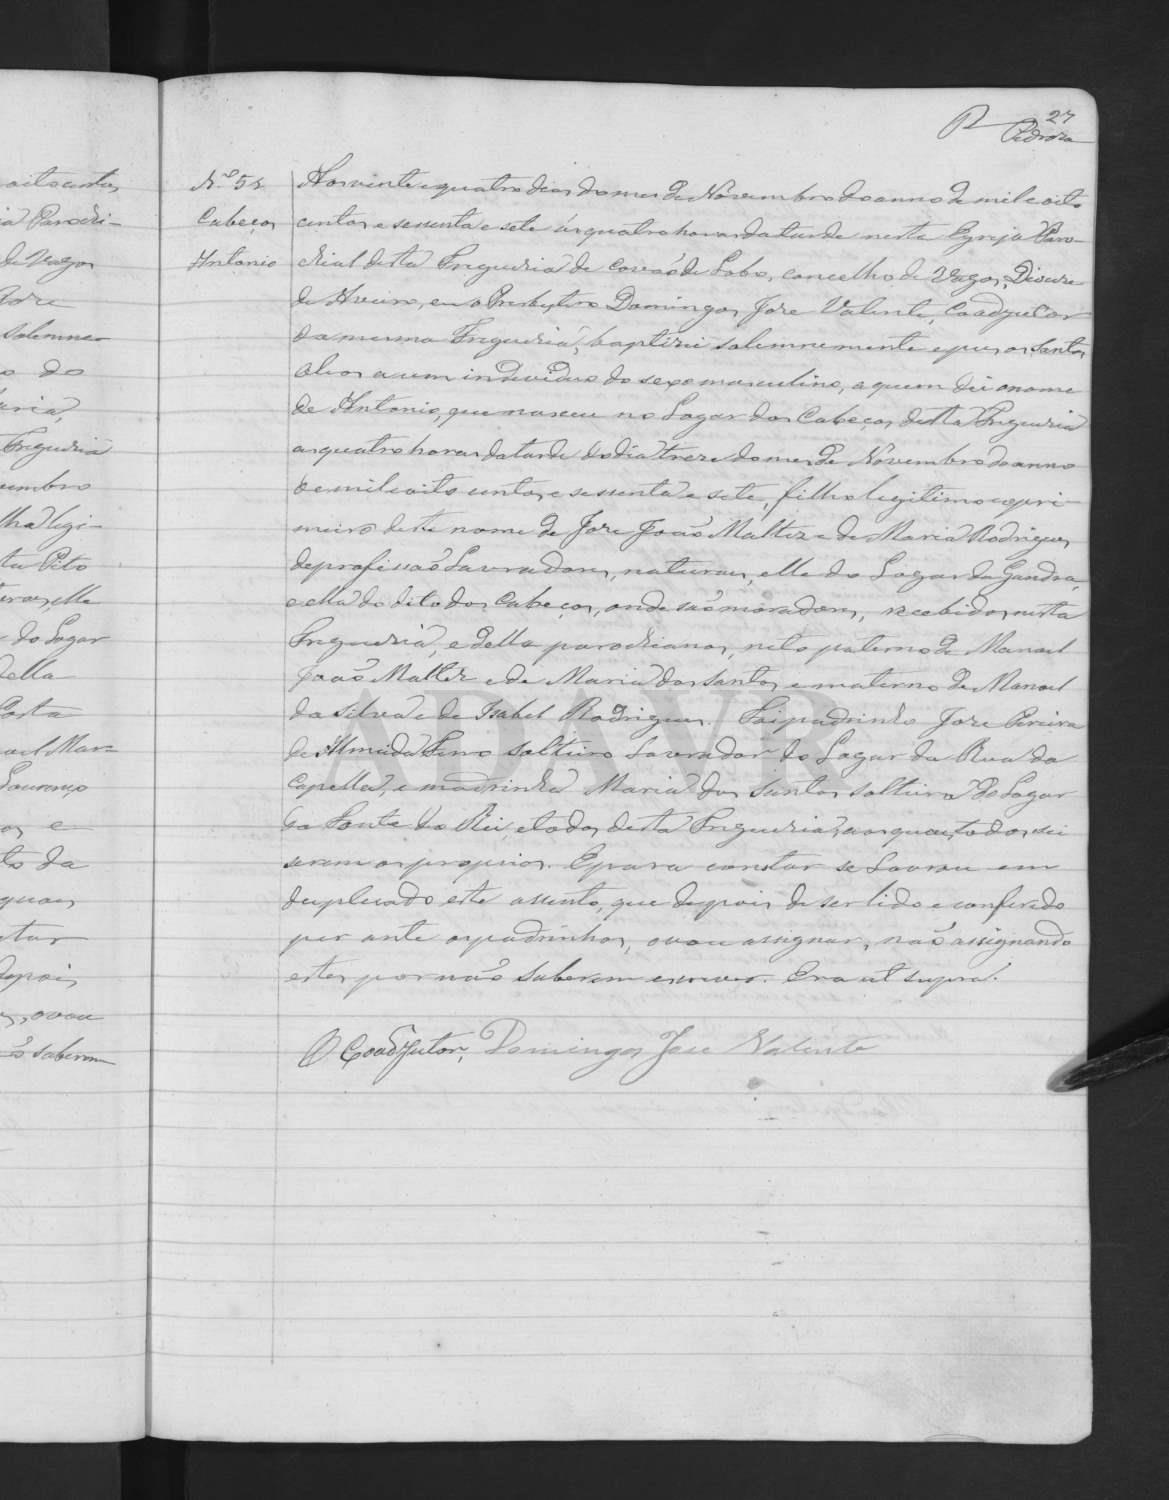 27
R Pedroza
Nº 58
Cabeços
Antonio
Aos vinte e quatro dias do mes de Novembro do anno de mil e oito
centos e sessenta e sete ás quatro horas da tarde nesta Egreja Paro-
chial desta Freguezia de Covão de Lobo, concelho de Vagos, Diocese
de Aveiro, eu o Presbytero Domingos Jose Valente, Coadjuctor
da mesma Freguezia, baptizei solemnemente e puz os santos
oleos a um individuo do sexo masculino, a quem dei o nome
de Antonio, que nasceu no Logar dos Cabeços desta Freguezia
as quatro horas da tarde do dia treze do mes de Novembro do anno
de mil e oito centos e sessenta e sete, filho legitimo e o pri-
meiro deste nome de Jose João Maltez e de Maria Rodrigues
de profissão Lavradores, naturaes, elle do Logar da Gandra,
e ella do dito dos Cabeços, onde são moradores, recebidos nesta
Freguezia, e della parochianos, neto paterno de Manoel
João Maltez e de Maria dos Santos e materno de Manoel
da Silva e de Isabel Rodrigues. Foi padrinho Jose Pereira
de Almeida solteiro Lavrador do Logar da Rua da
Capella, e madrinha Maria dos Santos solteira do Logar
da Fonte do Rei, e todos desta Freguezia, aos quaes todos sei
serem os proprios. E para constar se Lavrou em
duplicado este assento, que depois de ser lido e conferido
per ante os padrinhos, o vou assignar, não assignando
estes por não saberem escrever. Era ut supra.
O Coadjutor, Domingos Jose Valente
ADAVR